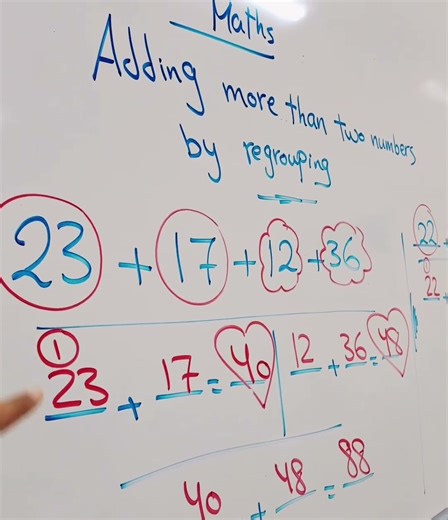 Maths
Adding more than two numbers
by regrouping
23 + 17 + 12 + 36
22
1
23 + 17 = 40
12 + 36 = 48
22
40 + 48 = 88